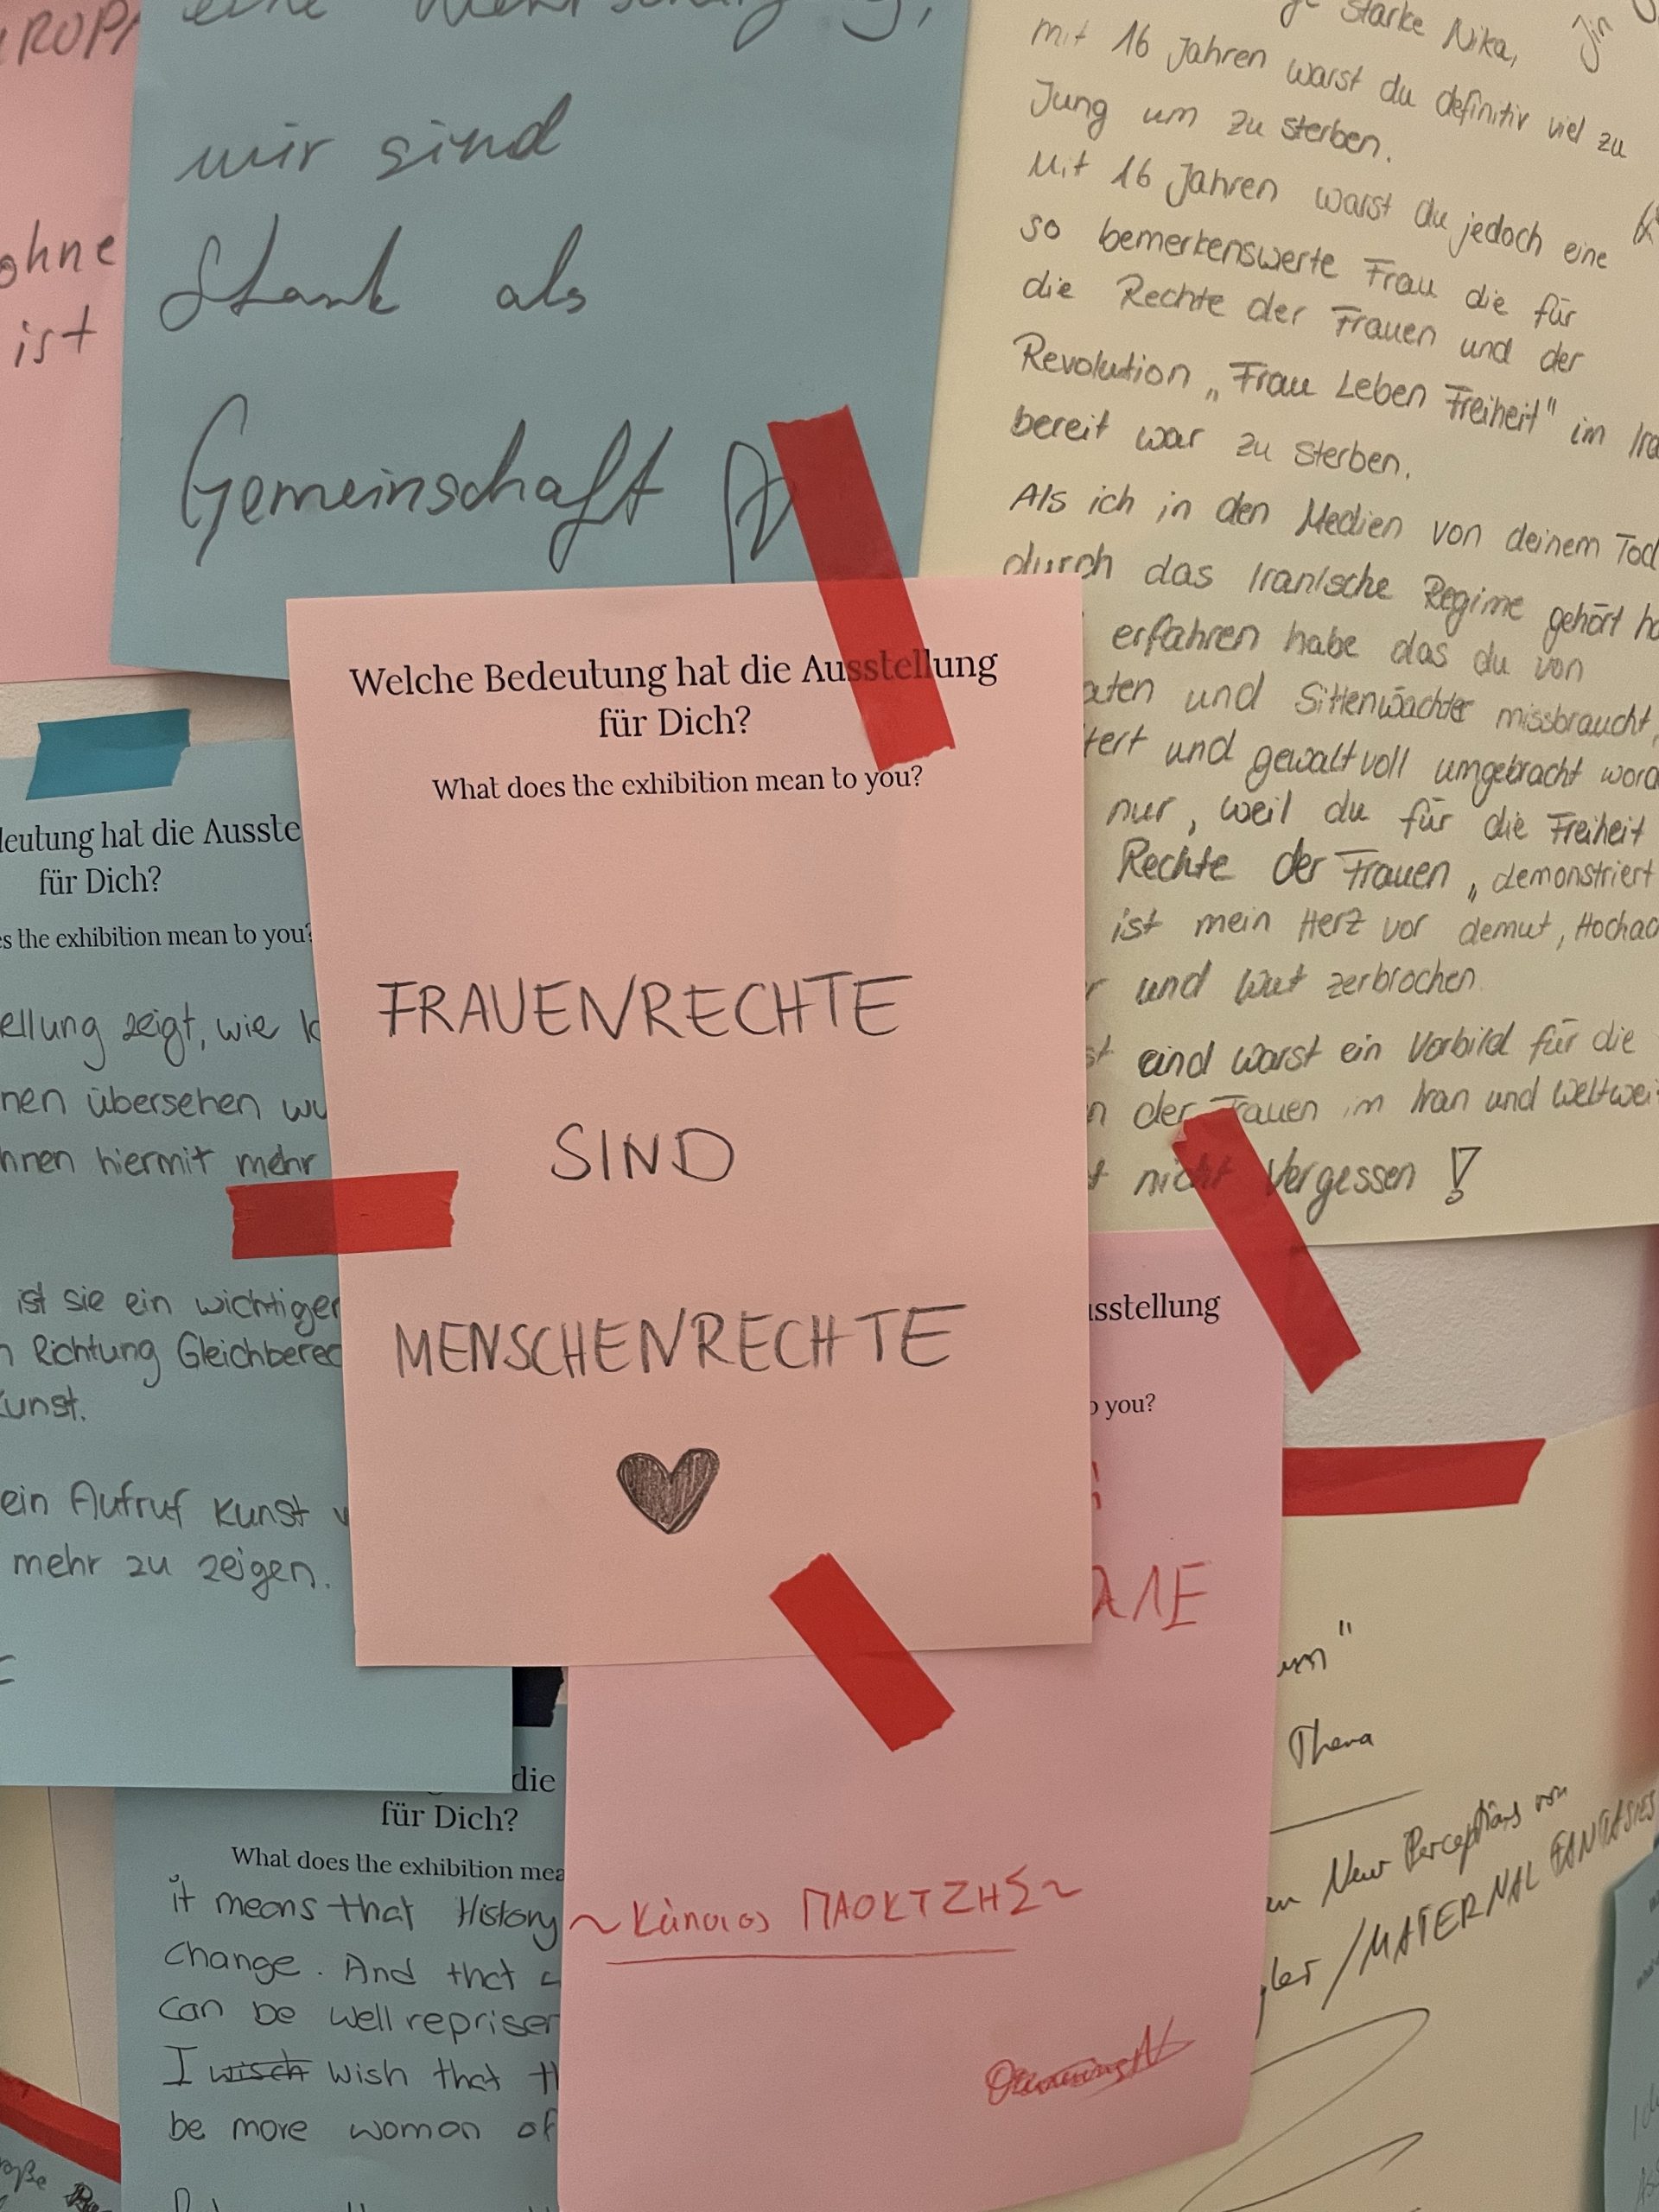 ohne
ist
mir sind
Stark als
Gemeinschaft
Starke Nika,
Jin
mit 16 Jahren warst du definitiv viel zu
Jung um zu sterben.
Mit 16 Jahren warst du jedoch eine
so bemerkenswerte Frau die für
die Rechte der Frauen und der
Revolution „Frau Leben Freiheit" im Ira
bereit war zu sterben.
Als ich in den Medien von deinem Tod
durch das Iranische Regime gehört ha
erfahren habe das du von
aten und Sittenwächter missbraucht,
tert und gewaltvoll umgebracht word
nur, weil du für die Freiheit
Rechte der Frauen „ demonstriert
ist mein Herz vor demut, Hochac
r und Wut zerbrochen.
st und warst ein Vorbild für die
n der Frauen im Iran und Weltweit
t nicht Vergessen !
Welche Bedeutung hat die Ausstellung
für Dich?
What does the exhibition mean to you?
FRAUENRECHTE
SIND
MENSCHENRECHTE
deutung hat die Ausste
für Dich?
es the exhibition mean to you?
ellung zeigt, wie
nen übersehen wu
hnen hiermit mehr
ist sie ein wichtiger
n Richtung Gleichberec
Kunst.
ein Aufruf Kunst v
mehr zu zeigen.
sstellung
o you?
ΛΕ
~ Κάποιος ΠΑΟΚΤΖΗΣ ~
die
für Dich?
What does the exhibition mea
it means that History
change. And that
can be well reprisen
I wisch wish that th
be more woman of
um"
Thema
New Perceptions von
gler / MATERNAL FANTASIES